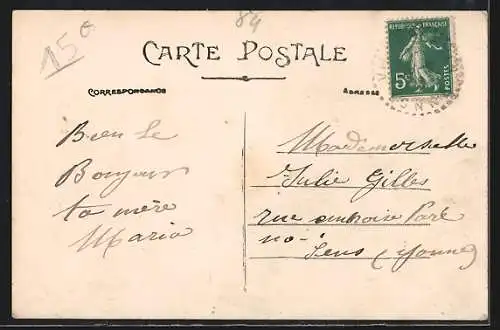 84
15
CARTE POSTALE
RÉPUBLIQUE FRANÇAISE
5c
POSTES
CORRESPONDANCE
ADRESSE
Bien le
Bonjour
ta mère
Maria
Mademoiselle
Julie Gilles
rue ambroise Paré
no-
Sens (Yonne)